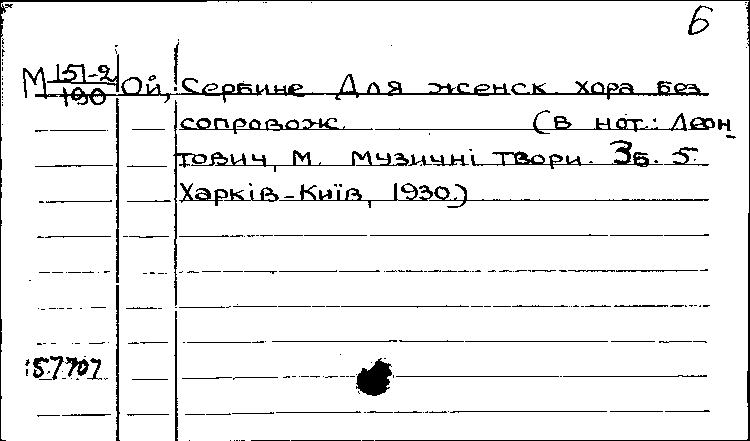 6
М 151-2/190 Ой, Сербине Для женск. хора без
сопровож. (в нот.: Леон
тович, М. Музичні твори. Зб. 5.
Харків-Київ, 1930.)
157707